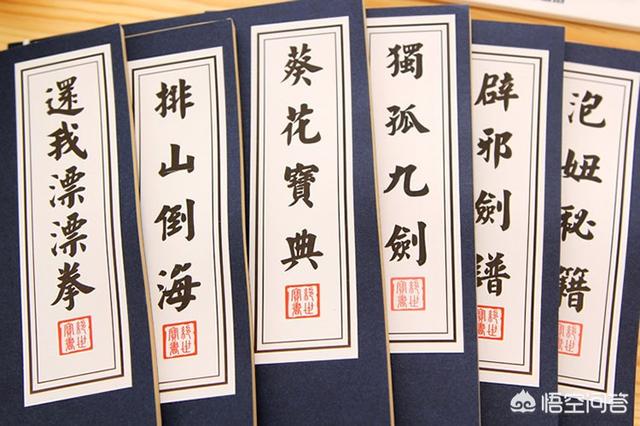 還我漂漂拳
排山倒海
葵花寶典
獨孤九劍
辟邪劍譜
泡妞秘籍
悟空问答